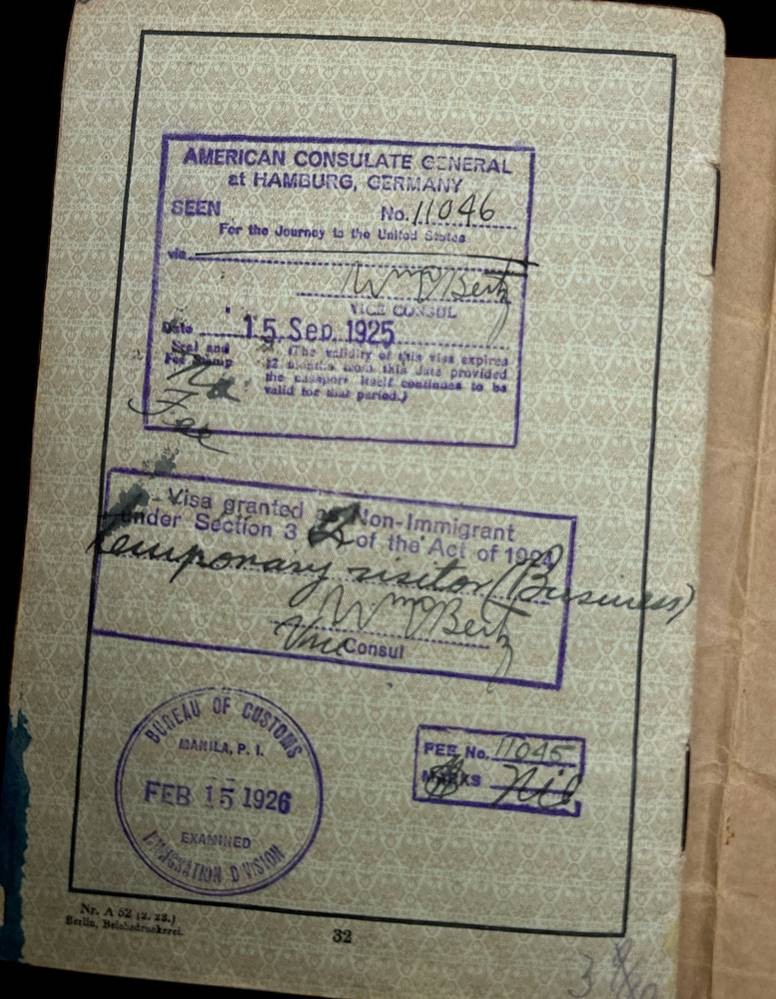 AMERICAN CONSULATE GENERAL
at HAMBURG, GERMANY
SEEN No. 11046
For the Journey to the United States
via
Wm P Bertz
VICE CONSUL
Date 15 Sep. 1925
Seal and
Fee Stamp
(The validity of this visa expires
12 months from this date provided
the passport itself continues to be
valid for that period.)
No
Fee
Visa granted as Non-Immigrant
under Section 3 2 of the Act of 1924
temporary visitor (Business)
Wm P Bertz
Vice Consul
BUREAU OF CUSTOMS
MANILA, P. I.
FEB 15 1926
EXAMINED
IMMIGRATION DIVISION
FEE No. 11045
MARKS Nil
Nr. A 52 (2. 23.)
Berlin, Reichsdruckerei.
32